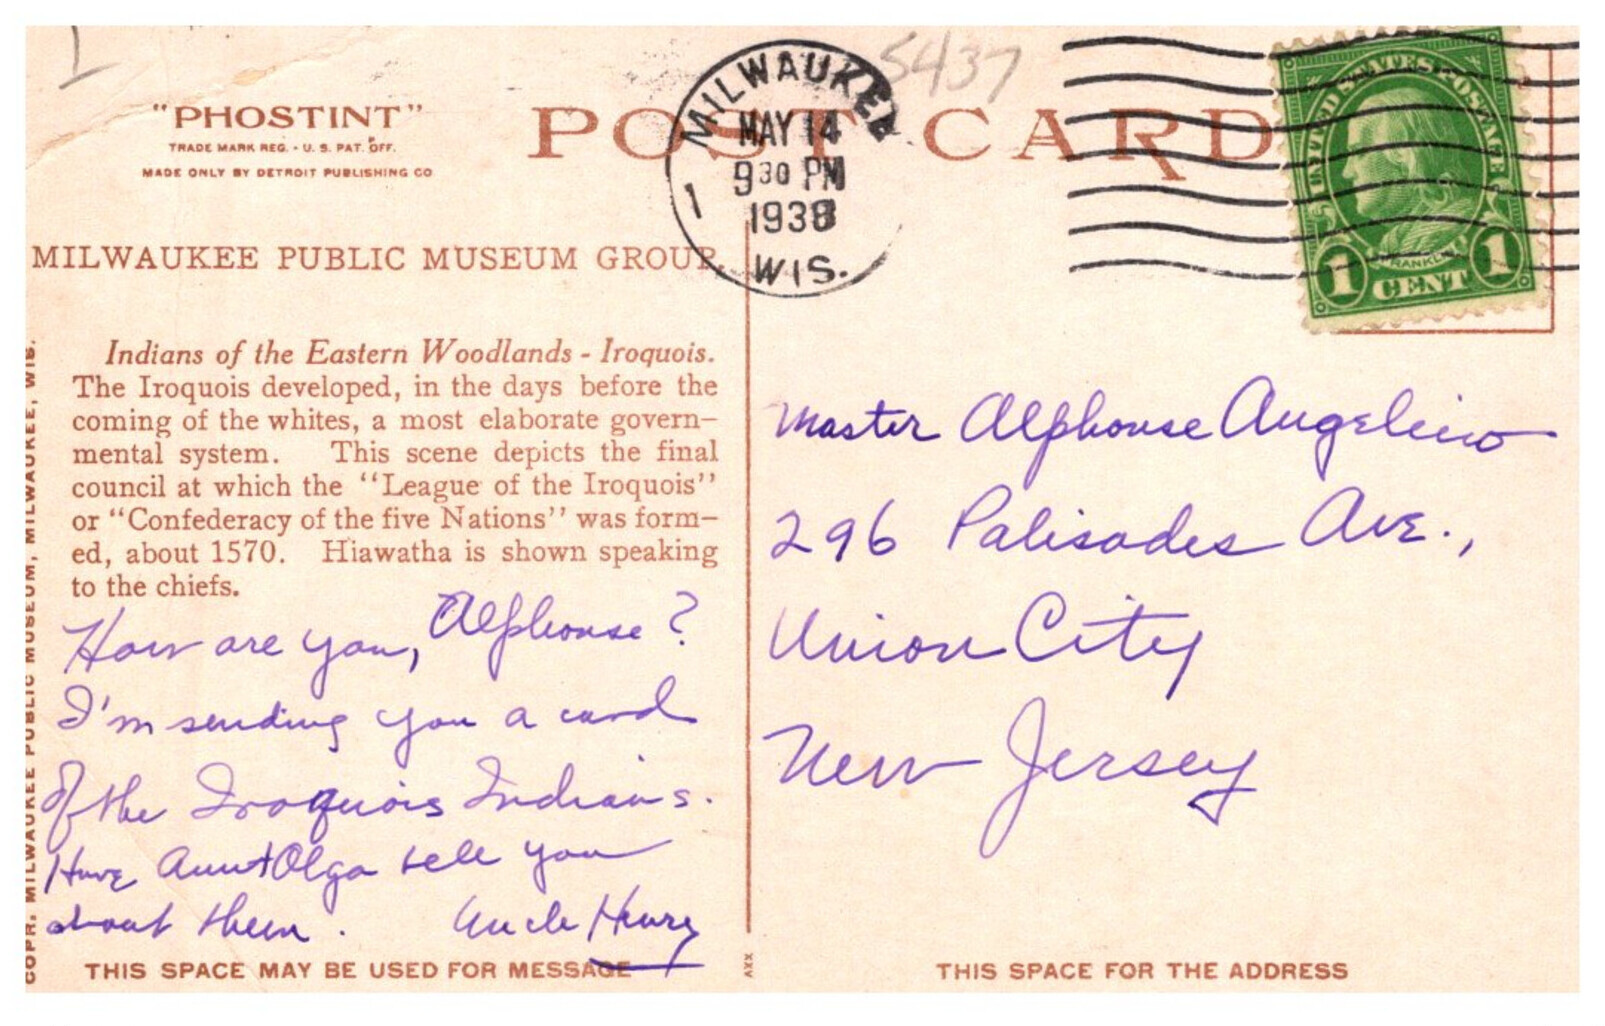 5437
"PHOSTINT"
TRADE MARK REG. - U. S. PAT. OFF.
MADE ONLY BY DETROIT PUBLISHING CO
POST CARD
MILWAUKEE
MAY 14
9 30 PM
1
WIS.
UNITED STATES POSTAGE
FRANKLIN
1 CENT 1
MILWAUKEE PUBLIC MUSEUM GROUP.
Indians of the Eastern Woodlands - Iroquois.
The Iroquois developed, in the days before the
coming of the whites, a most elaborate govern-
mental system. This scene depicts the final
council at which the "League of the Iroquois"
or "Confederacy of the five Nations" was form-
ed, about 1570. Hiawatha is shown speaking
to the chiefs.
How are you, Alphonse?
I'm sending you a card
of the Iroquois Indians.
Have Aunt Olga tell you
about them. Uncle Henry
THIS SPACE MAY BE USED FOR MESSAGE
COPR. MILWAUKEE PUBLIC MUSEUM, MILWAUKEE, WIS.
AXX
Master Alphonse Angelino
296 Palisades Ave.,
Union City
New Jersey
THIS SPACE FOR THE ADDRESS